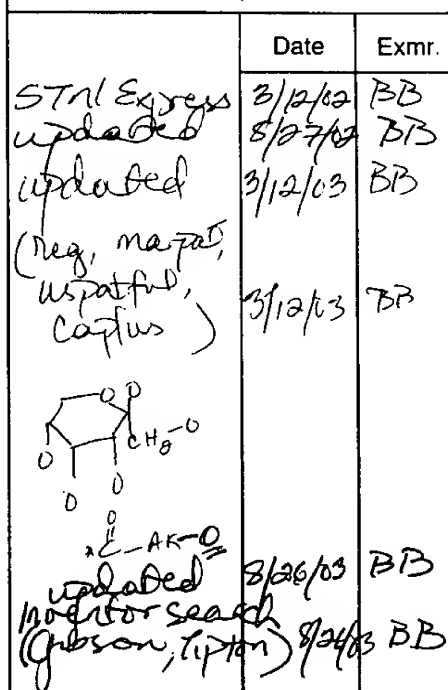 Date Exmr.
STN/Express 3/12/02 BB
updated 8/27/02 BB
updated 3/12/03 BB
(reg, marpat,
uspatful,
Caplus) 3/12/03 BB
O O
CH2-O
O
O
O
O
C-AK-O
updated 8/26/03 BB
Inventor search
(Gibson, Tipton) 8/26/03 BB